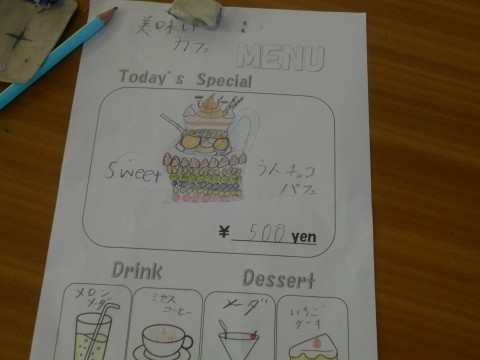 美味い
カフェ
MENU
Today's Special
Sweet
うんチョコ
パフェ
¥ 500 yen
Drink
Dessert
メロン
ソーダ
コーヒー
いちご
ケーキ